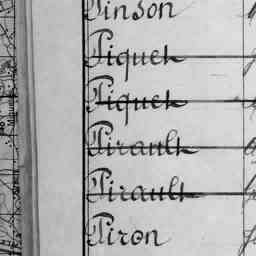 Pinson
Piquet
Piquet
Pirault
Pirault
Piron